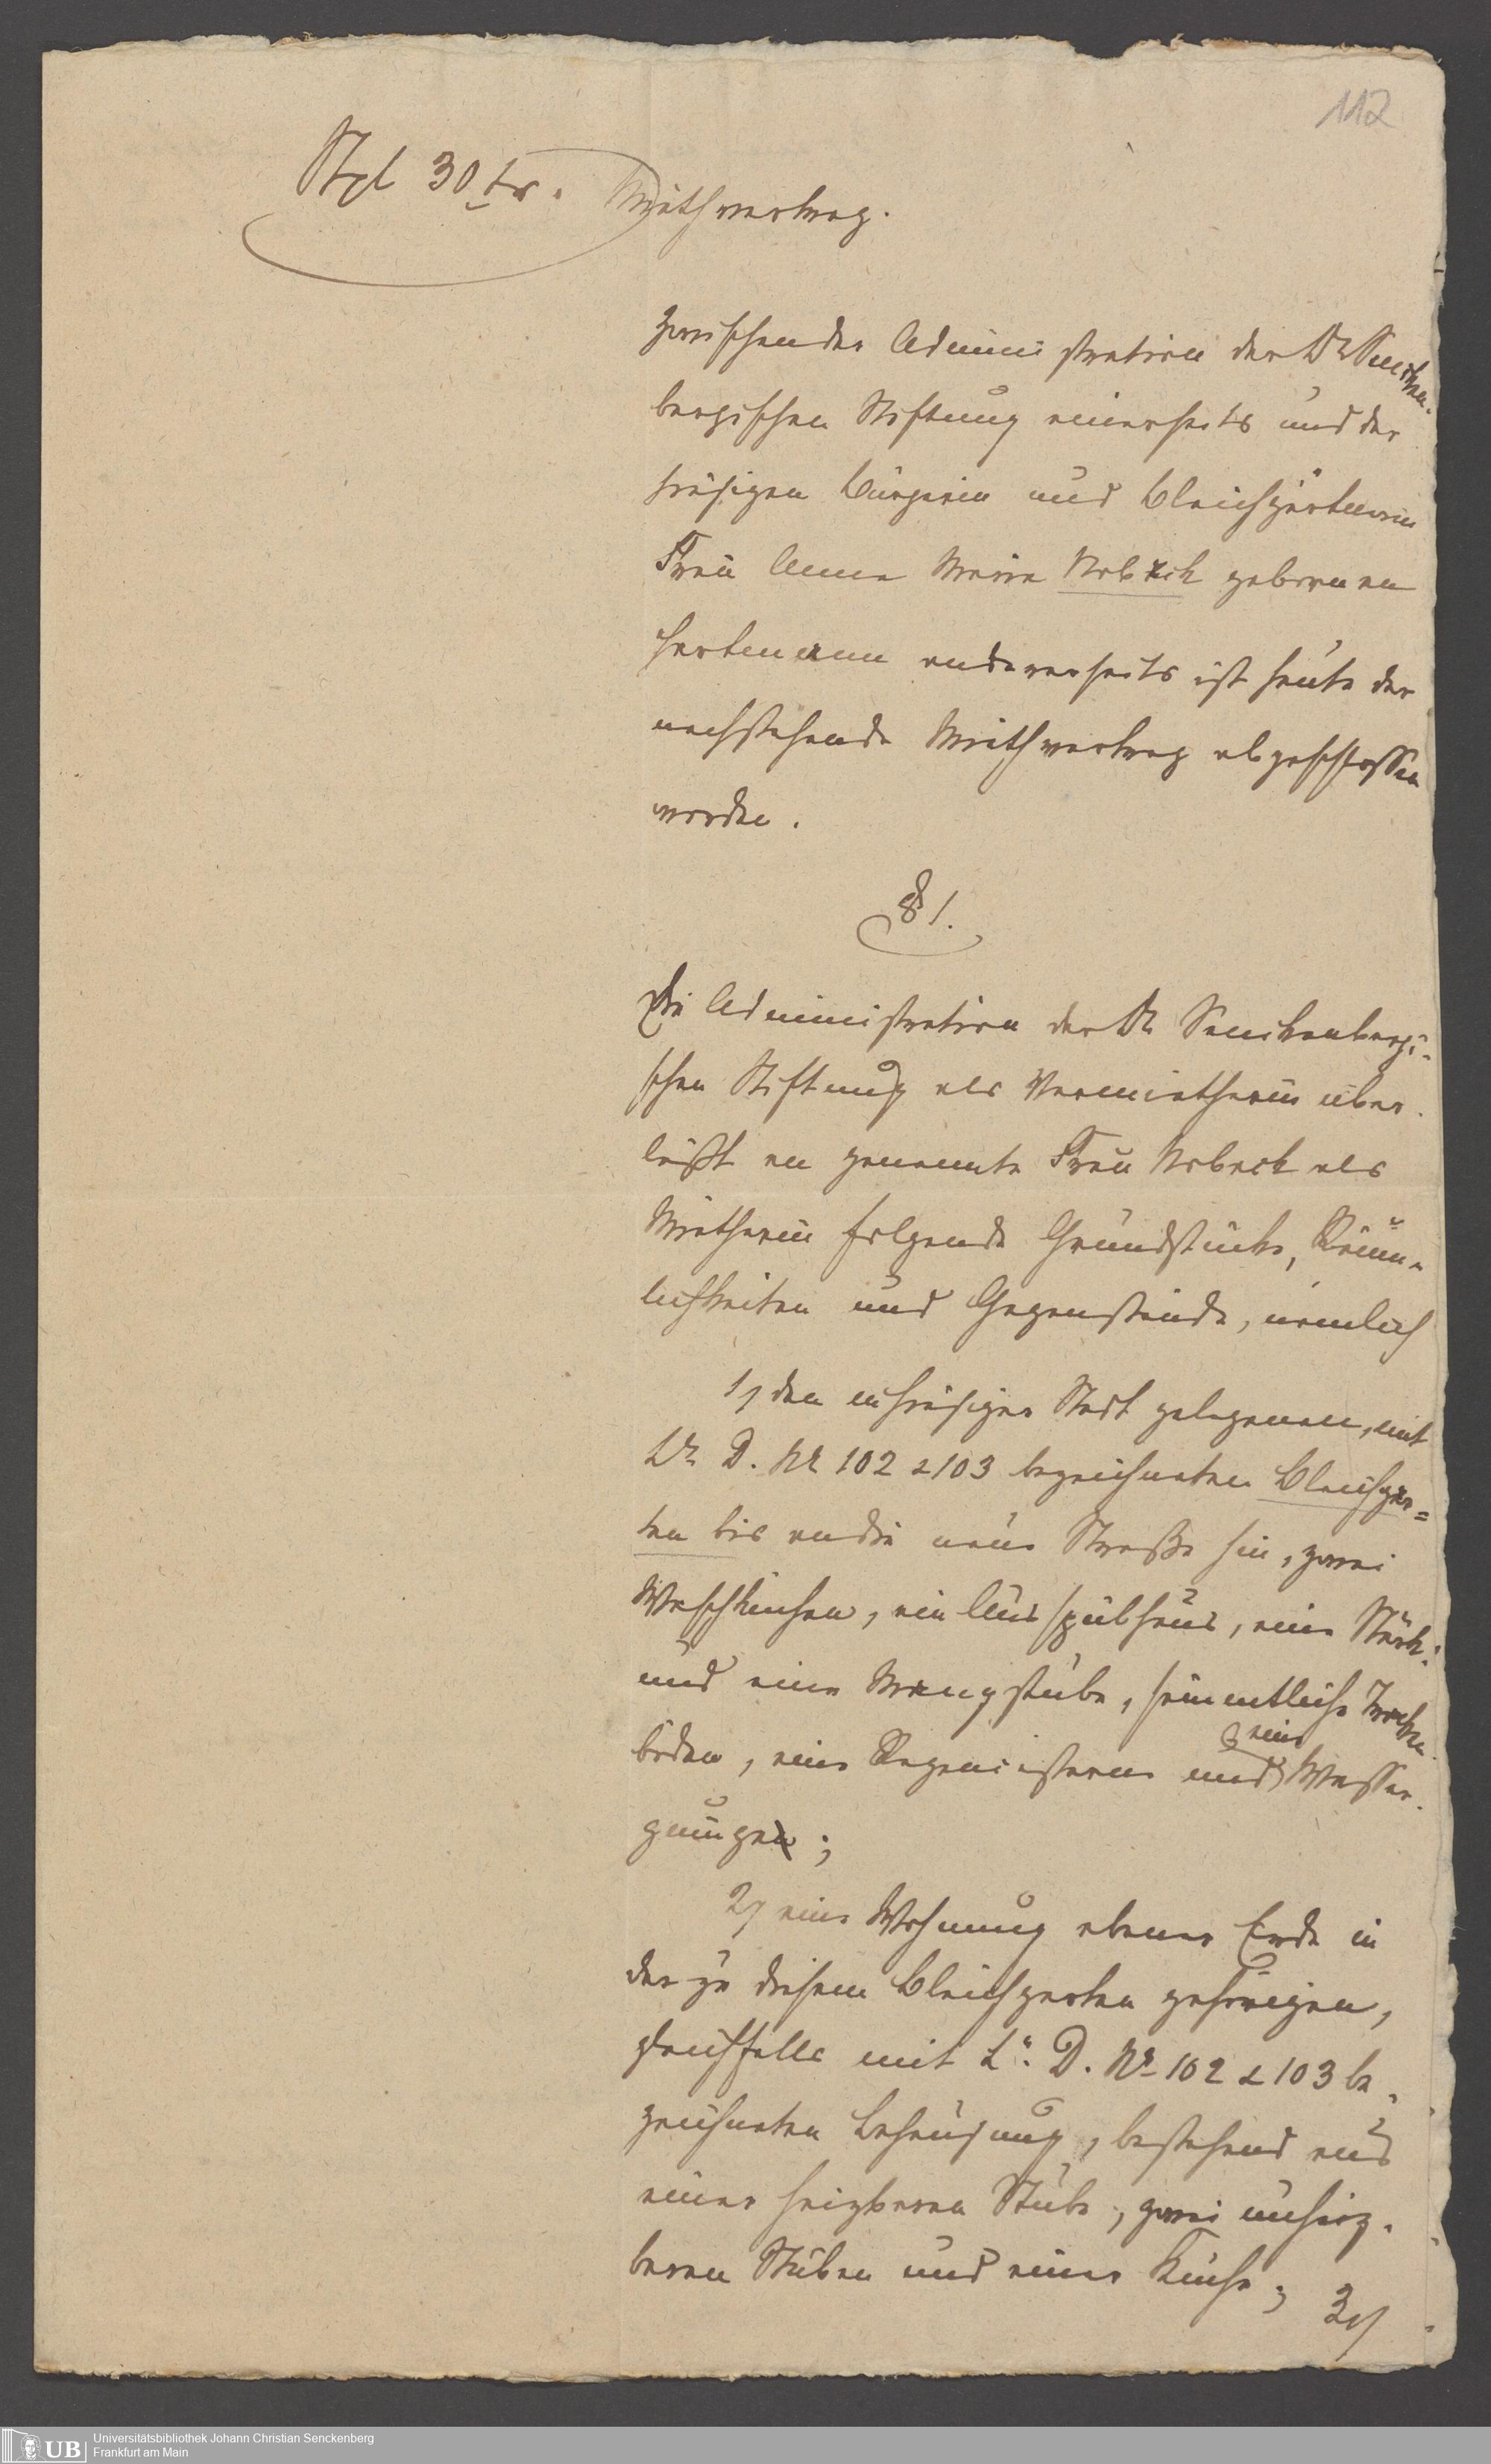 112
Stpl 30 kr.
Miethvertrag.
Zwischen der Administration der Dr Sencken-
bergischen Stiftung einerseits und der
hiesigen Bürgerin und Bleichgärtnerin
Frau Anna Maria Nobach gebornen
Hartmann andererseits ist heute der
nachstehende Miethvertrag abgeschlossen
worden.
§ 1.
Die Administration der Dr Senckenbergi-
schen Stiftung als Vermietherin über-
läßt an genannte Frau Nobach als
Mietherin folgende Grundstücke, Räum-
lichkeiten und Gegenstände, nämlich
1) den in hiesiger Stadt gelegenen, mit
Lr. D. Nr 102 & 103 bezeichneten Bleichgar=
ten bis an die neue Straße hin, zwei
Waschküchen, ein Ausspülhaus, eine Stärk-
und eine Mangstube, sämmtliche Trocken-
böden, eine Regencisterne und eine Wasser-
pumpe;
2) eine Wohnung ebener Erde in
der zu diesem Bleichgarten gehörigen,
gleichfalls mit Lr. D. Nr 102 & 103 be-
zeichneten Behausung, bestehend aus
einer heizbaren Stube, zwei unheiz-
baren Stuben und einer Küche;
3)
UB
Universitätsbibliothek Johann Christian Senckenberg
Frankfurt am Main